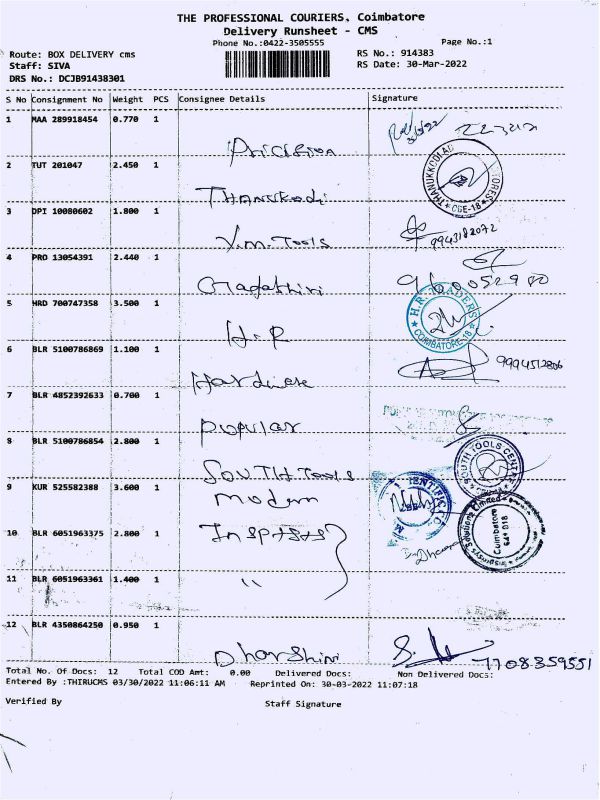 THE PROFESSIONAL COURIERS, Coimbatore
Delivery Runsheet - CMS
Phone No.:0422-3505555
Page No.:1
Route: BOX DELIVERY cms
RS No.: 914383
Staff: SIVA
RS Date: 30-Mar-2022
DRS No.: DCJB91438301
S No Consignment No Weight PCS Consignee Details Signature
1 MAA 289918454 0.770 1
Precision
2 TUT 201047 2.450 1
Thanukodi
THANUKKODI
STORES
CBE-18
3 DPI 10080602 1.800 1
V.M. Tools
9943182072
4 PRO 13054391 2.440 1
5 HRD 700747358 3.500 1
H.R
H.R. TRADERS
COIMBATORE-18
6 BLR 5100786869 1.100 1
Hardware
9994512806
7 BLR 4852392633 0.700 1
popular
8 BLR 5100786854 2.800 1
South Tools
SOUTH TOOLS CENTRE
9 KUR 525582388 3.600 1
modern
10 BLR 6051963375 2.800 1
Solutions Limited
Coimbatore
641 018
11 BLR 6051963361 1.400 1
"
12 BLR 4350864250 0.950 1
Dharshini
7708359551
Total No. Of Docs: 12 Total COD Amt: 0.00 Delivered Docs: Non Delivered Docs:
Entered By :THIRUCMS 03/30/2022 11:06:11 AM Reprinted On: 30-03-2022 11:07:18
Verified By
Staff Signature